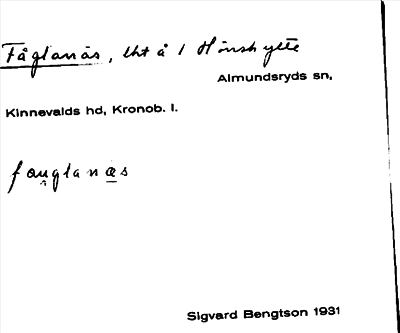 Fåglanäs, lht å 1 Hönshylte
Almundsryds sn,
Kinnevalds hd, Kronob. l.
fau̯glanæs
Sigvard Bengtson 1931